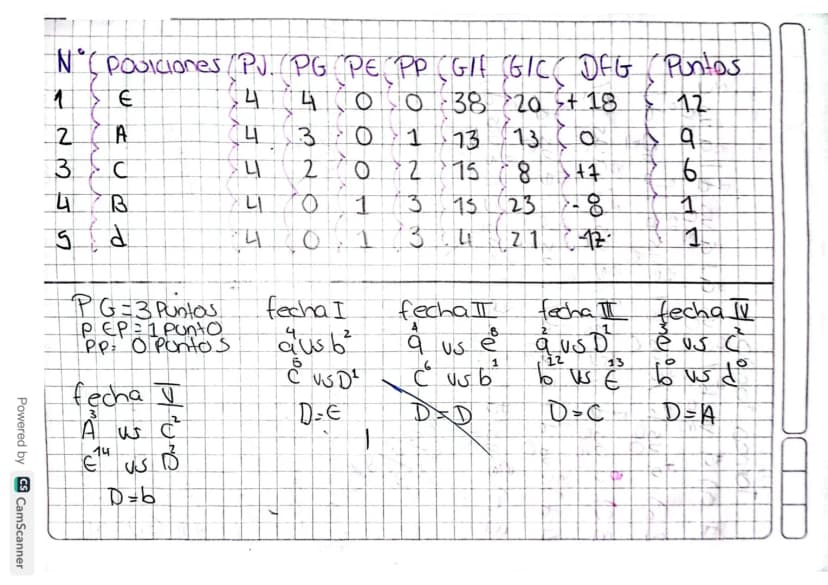 N° posiciones PJ. PG PE PP G/f G/C DFG Puntos
1 E 4 4 0 0 38 20 + 18 12
2 A 4 3 0 1 13 13 0 9
3 C 4 2 0 2 15 8 +7 6
4 B 4 0 1 3 15 23 - 8 1
5 d 4 0 1 3 4 21 -17 1
PG=3 Puntos
P EP=1 punto
PP= 0 Puntos
fecha I
4 2
a vs b
C vs D 1
D=E
fecha II
a vs e 8
C 6 vs b 1
D=D
fecha III
2 1
a vs D
12 13
b vs E
D=C
fecha IV
3 2
e vs C
0 0
b vs d
D=A
fecha V
3 2
A vs C
14 2
E vs D
D=b
Powered by CS CamScanner